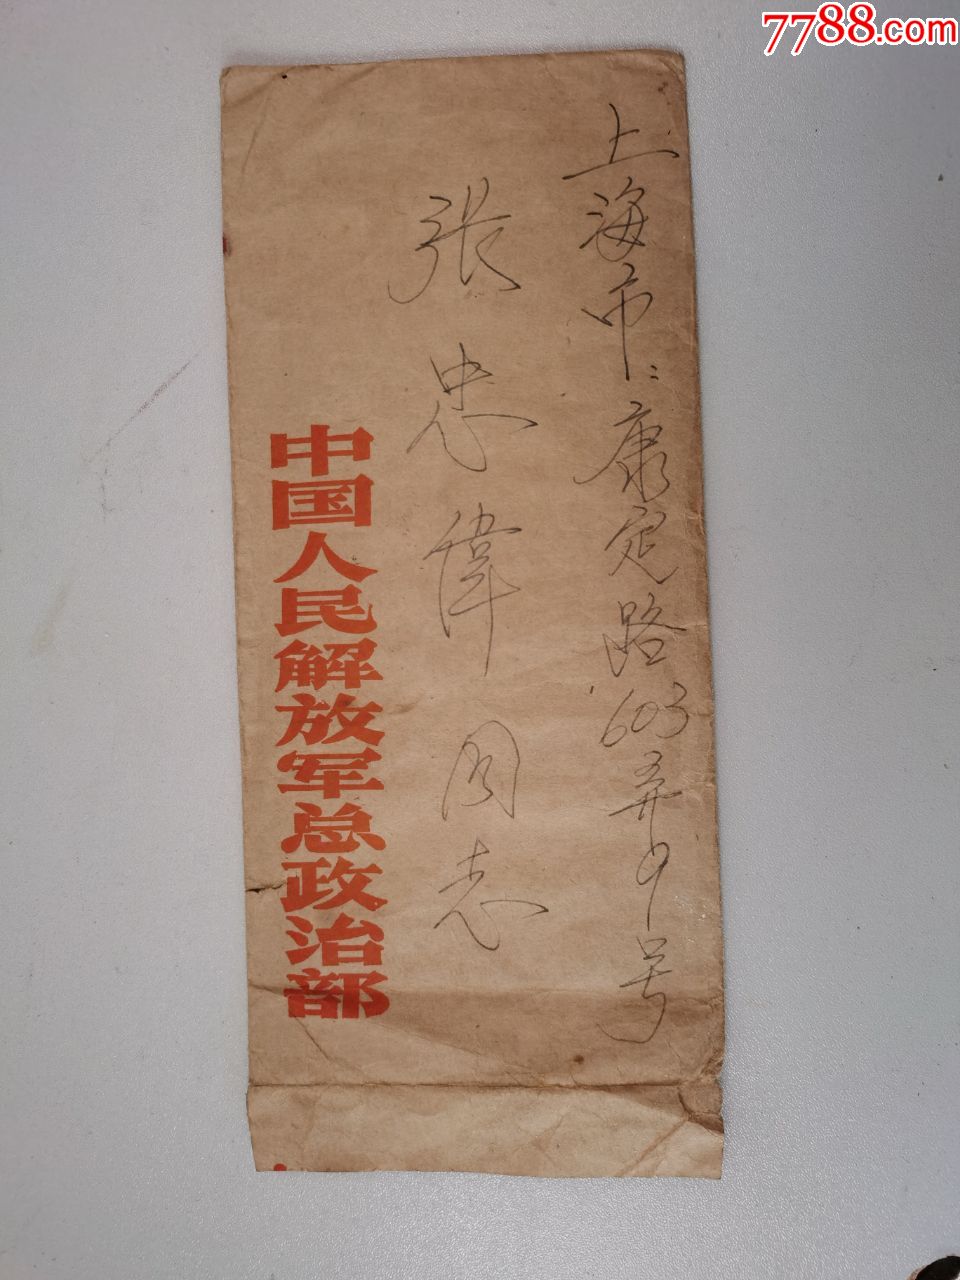 7788.com
上海市：康定路603弄9号
張忠偉同志
中国人民解放军总政治部